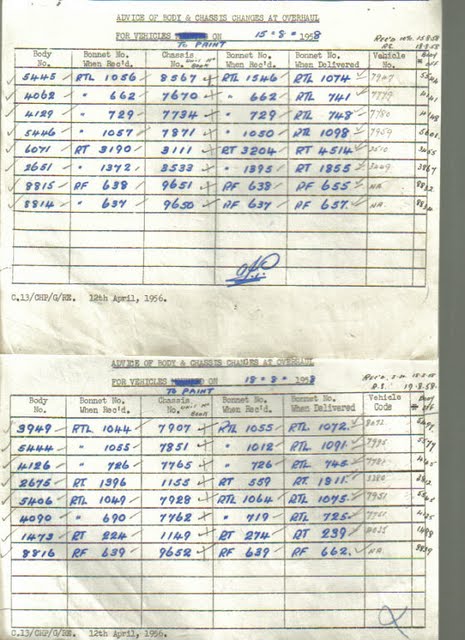 ADVICE OF BODY & CHASSIS CHANGES AT OVERHAUL
FOR VEHICLES ON 15·8· 1958
TO PAINT
Body No. Bonnet No. When Rec'd. Chassis No. Bonnet No. When Rec'd. Bonnet No. When Delivered Vehicle No. Body off
5445 RTL 1056 8567 RTL 1546 RTL 1074
4062 " 662 7670 " 662 RTL 741
4129 " 729 7734 " 729 RTL 748 7780
5446 " 1057 7871 " 1050 RTL 1098 7959
6071 RT 3190 3111 RT 3204 RT 4514
2651 " 1372 3533 " 1395 RT 1855
8815 RF 638 9651 RF 638 RF 655 NA
8814 " 637 9650 RF 637 RF 657 NA
C.13/CHP/G/RE. 12th April, 1956.
ADVICE OF BODY & CHASSIS CHANGES AT OVERHAUL
FOR VEHICLES ON 18·8· 1958
TO PAINT
19·8·58
Body No. Bonnet No. When Rec'd. Chassis No. Bonnet No. When Rec'd. Bonnet No. When Delivered Vehicle Code Body off
3949 RTL 1044 7907 RTL 1055 RTL 1072
5444 " 1055 7851 " 1012 RTL 1091
4126 " 726 7765 " 726 RTL 745
2675 RT 1396 1155 RT 559 RT 1911
5406 RTL 1049 7928 RTL 1064 RTL 1075 7951
4090 " 690 7762 " 719 RTL 725
1473 RT 224 1149 RT 274 RT 239
8816 RF 639 9652 RF 639 RF 662 NA 8839
C.13/CHP/G/RE. 12th April, 1956.